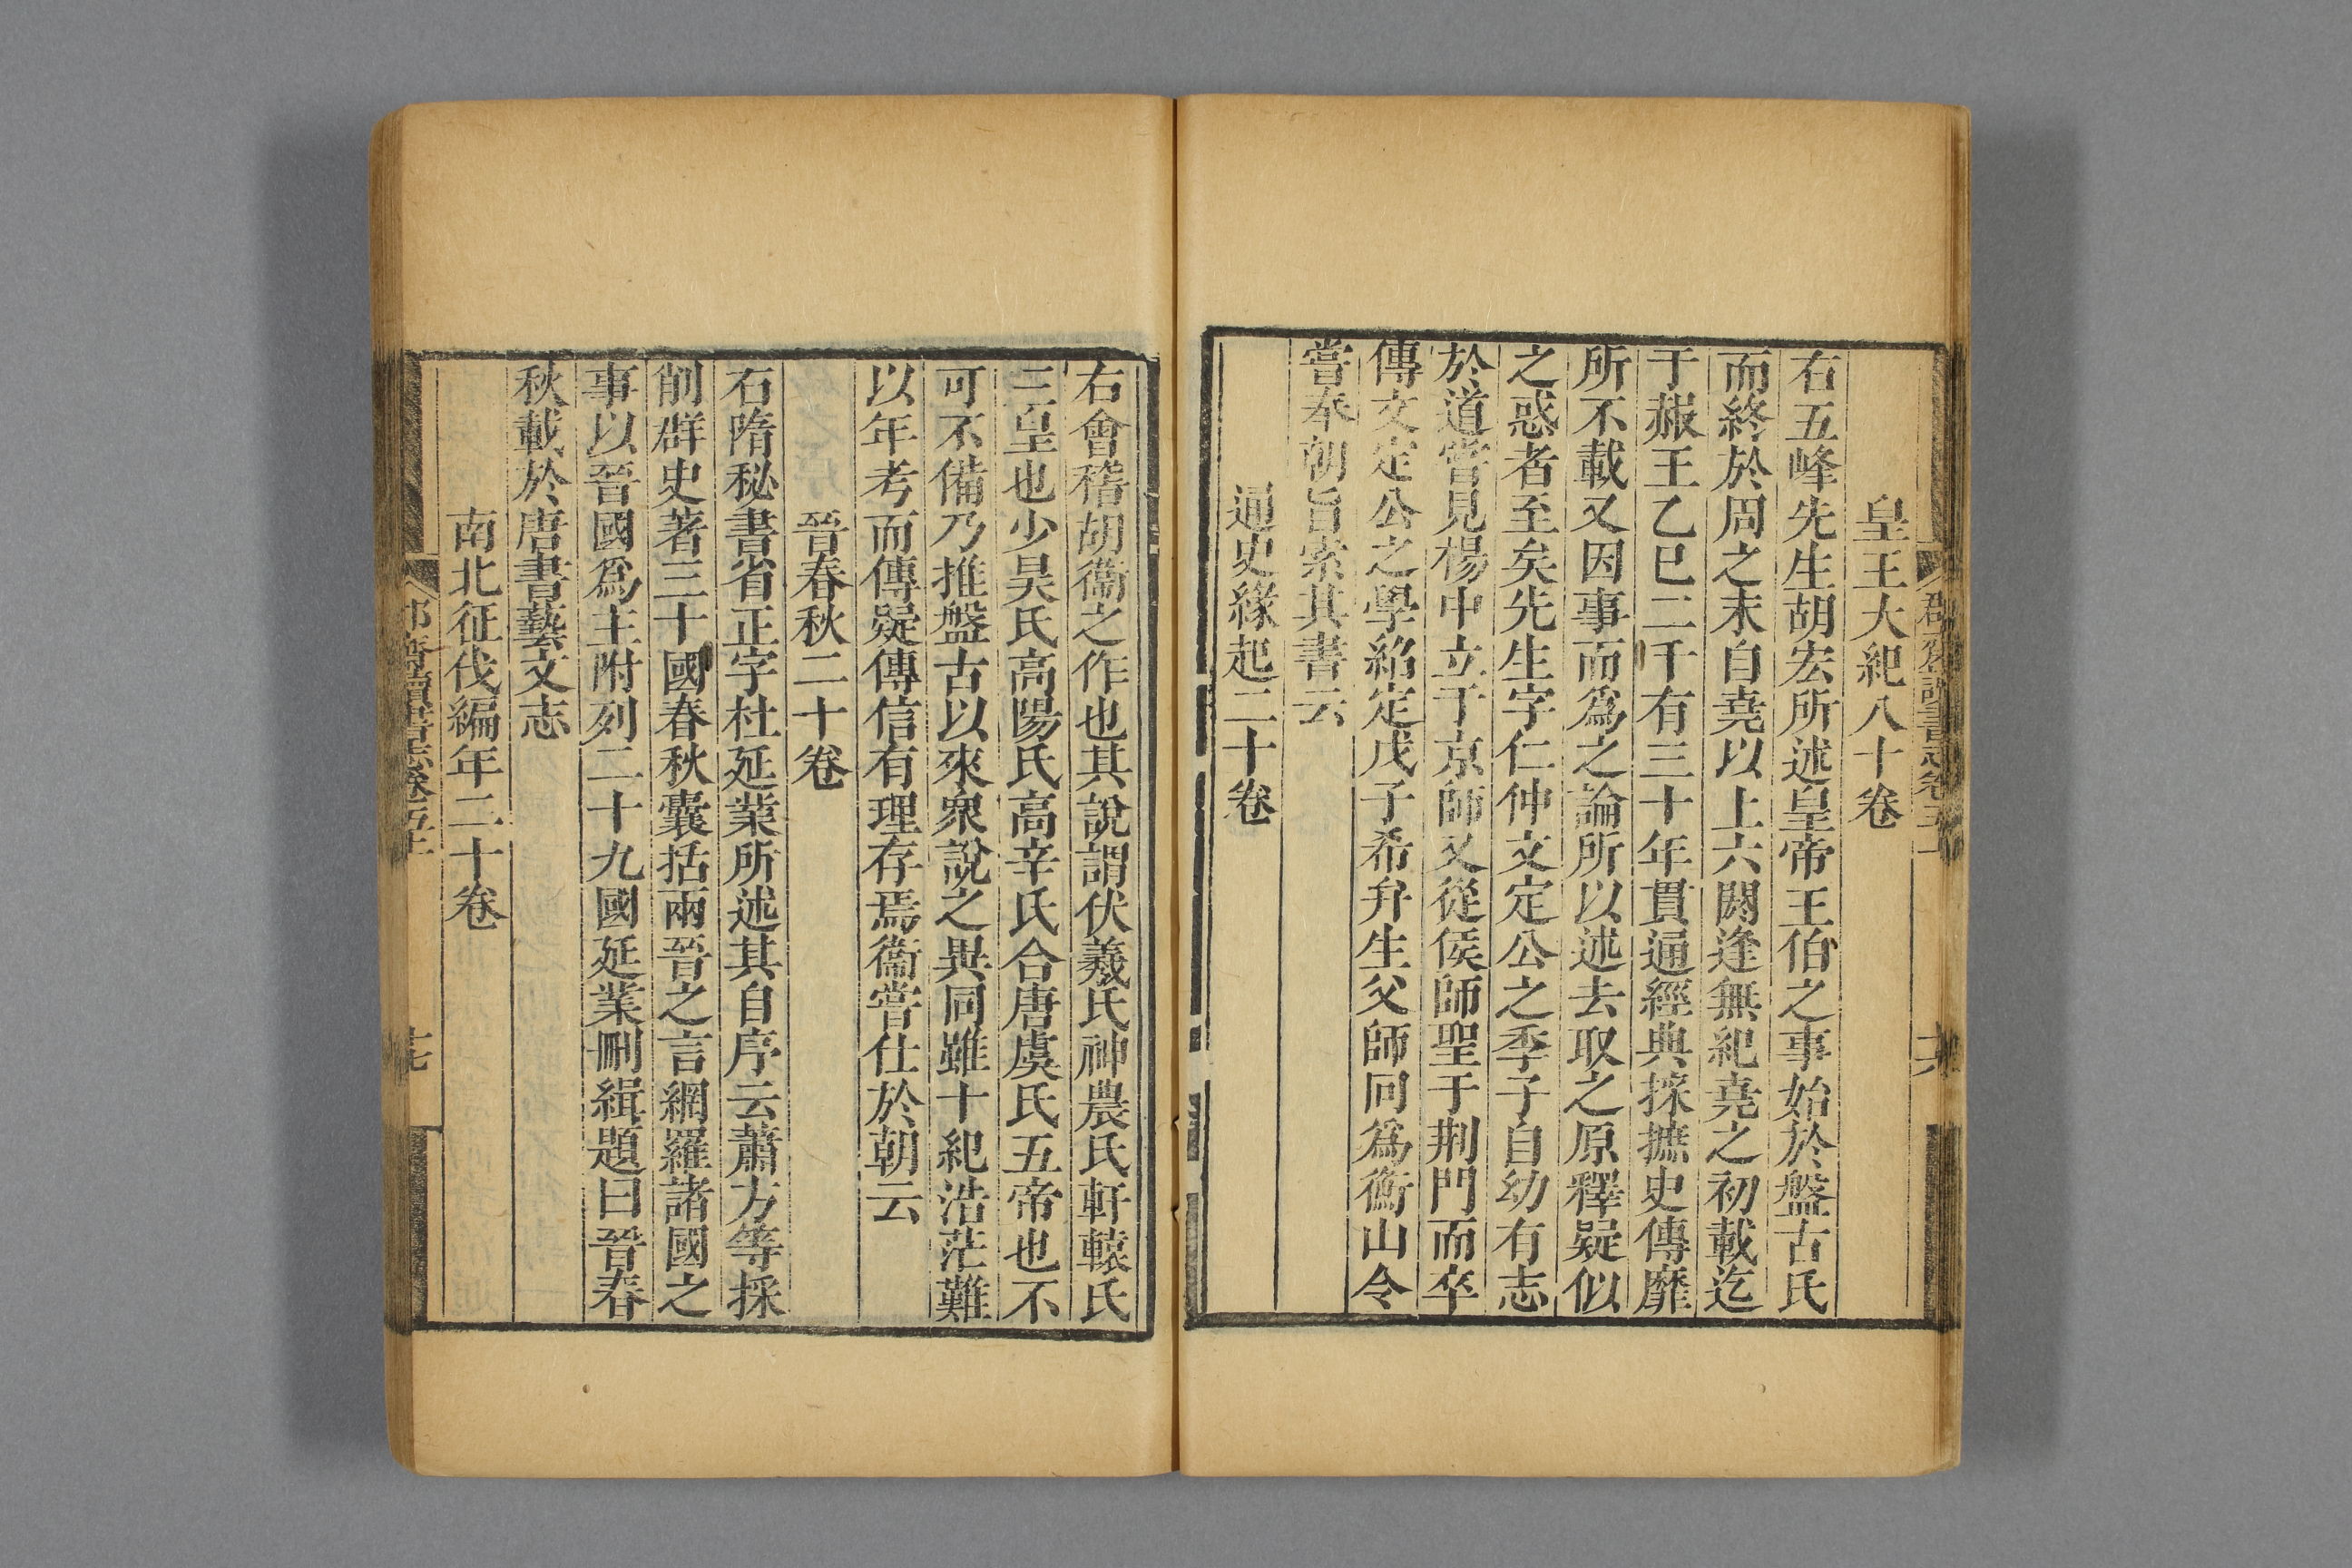 皇王大紀八十卷
右五峰先生胡宏所述皇帝王伯之事始於盤古氏
而終於周之末自堯以上六閼逢無紀堯之初載迄
于赧王乙巳二千有三十年貫通經典採摭史傳靡
所不載又因事而爲之論所以述去取之原釋疑似
之惑者至矣先生字仁仲文定公之季子自幼有志
於道嘗見楊中立于京師又從侯師聖于荆門而卒
傳文定公之學紹定戊子希弁生父師回爲衡山令
嘗奉朝旨索其書云
通史緣起二十卷
右會稽胡衞之作也其說謂伏羲氏神農氏軒轅氏
三皇也少昊氏高陽氏高辛氏合唐虞氏五帝也不
可不備乃推盤古以來衆說之異同雖十紀浩茫難
以年考而傳疑傳信有理存焉衞嘗仕於朝云
晉春秋二十卷
右隋秘書省正字杜延業所述其自序云蕭方等採
削群史著三十國春秋囊括兩晉之言網羅諸國之
事以晉國爲主附列二十九國延業刪緝題曰晉春
秋載於唐書藝文志
南北征伐編年二十卷
十七